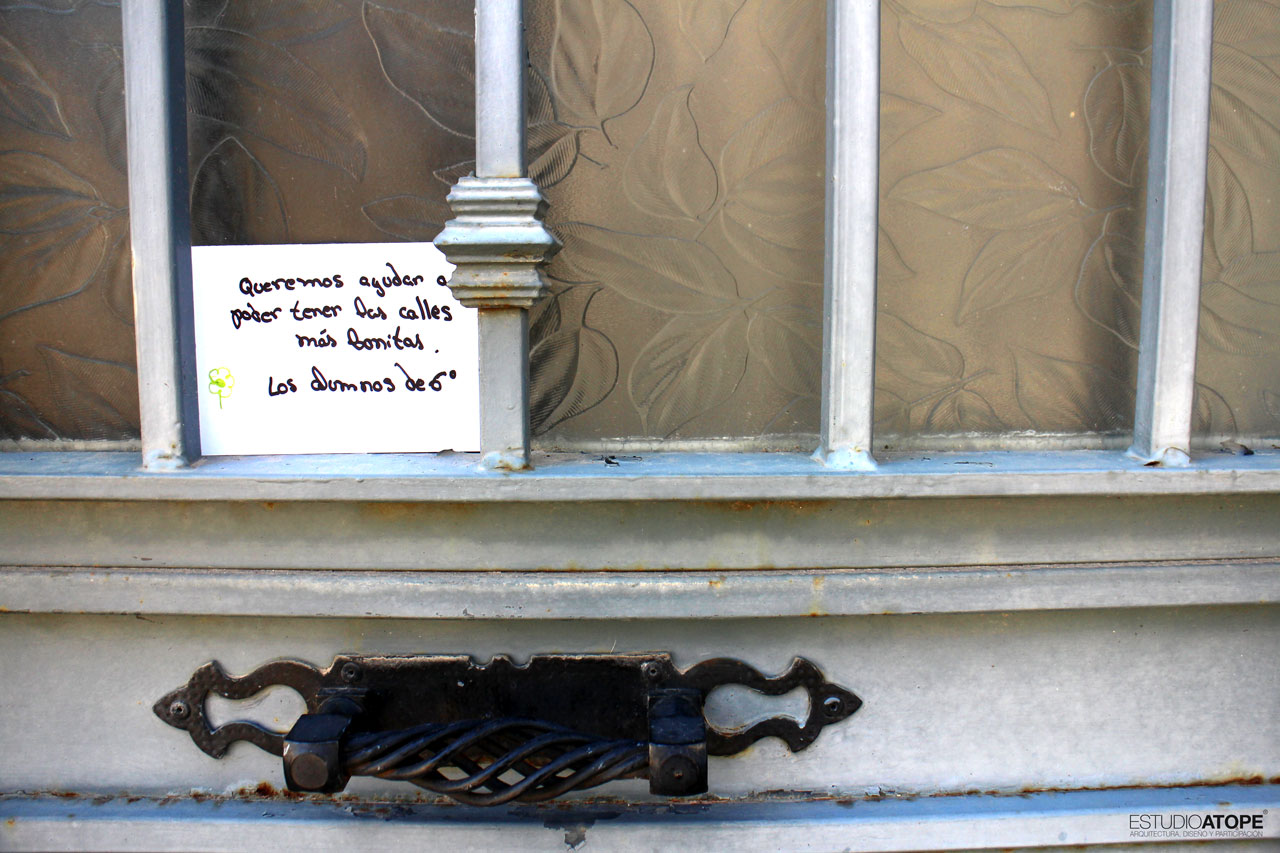 Queremos ayudar a
poder tener las calles
más bonitas.
Los alumnos de 6º
ESTUDIOATOPE®
ARQUITECTURA, DISEÑO Y PARTICIPACIÓN